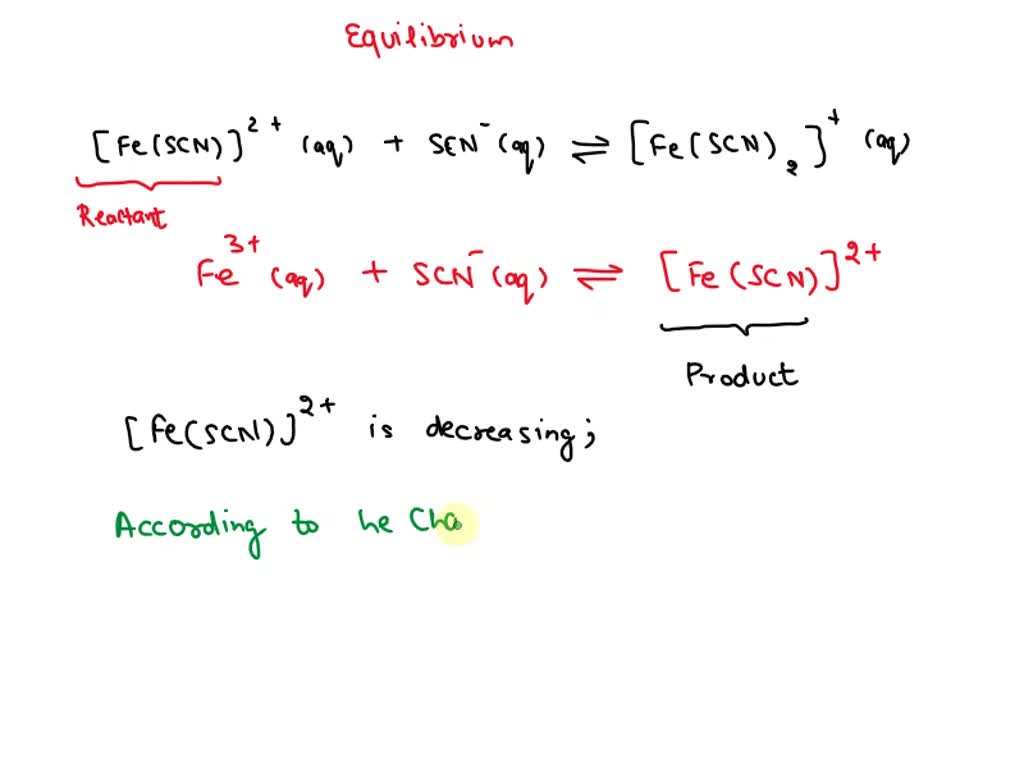 Equilibrium
[Fe(SCN)]²⁺ (aq) + SCN⁻ (aq) ⇌ [Fe(SCN)₂]⁺ (aq)
Reactant
Fe³⁺ (aq) + SCN⁻ (aq) ⇌ [Fe(SCN)]²⁺
Product
[Fe(SCN)]²⁺ is decreasing;
According to he Cha